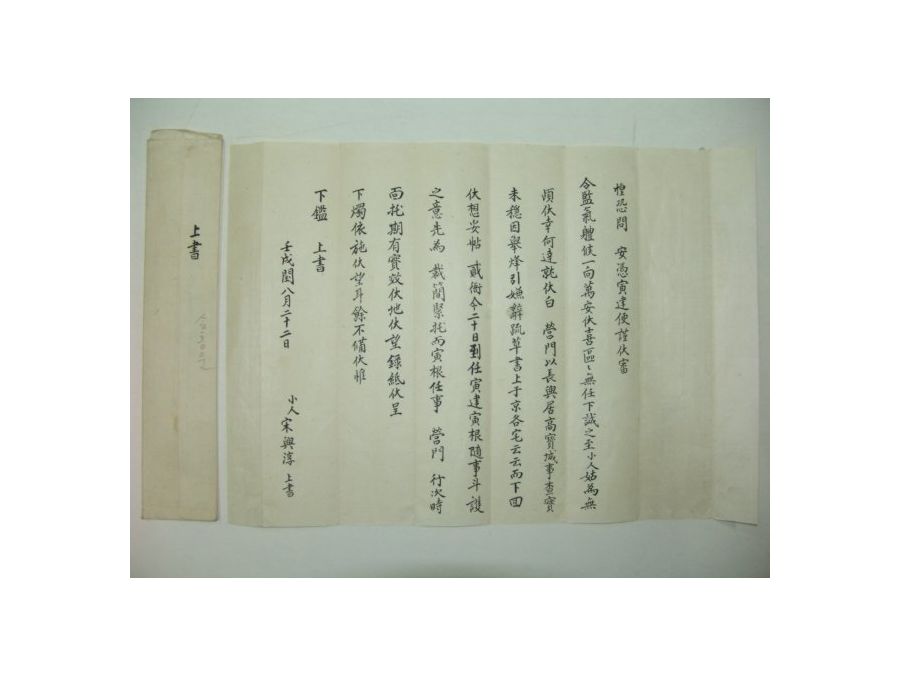 惶恐問　安憑寅建便謹伏審
令監氣體候一向萬安伏喜區〻無任下誠之至小人姑為無
頉伏幸何達就伏白　營門以長興居高寶城事查實
未穩因舉烽引嫌辭疏草書上于京各宅云云而下回
伏想妥帖　貳衙今二十日到任寅建寅根隨事斗護
之意先為　裁簡緊托而寅根任事　營門　行次時
面托期有實效伏地伏望錄紙伏呈
下燭依施伏望耳餘不備伏惟
下鑑　上書
壬戌閏八月二十二日
小人宋興淳 上書
上書